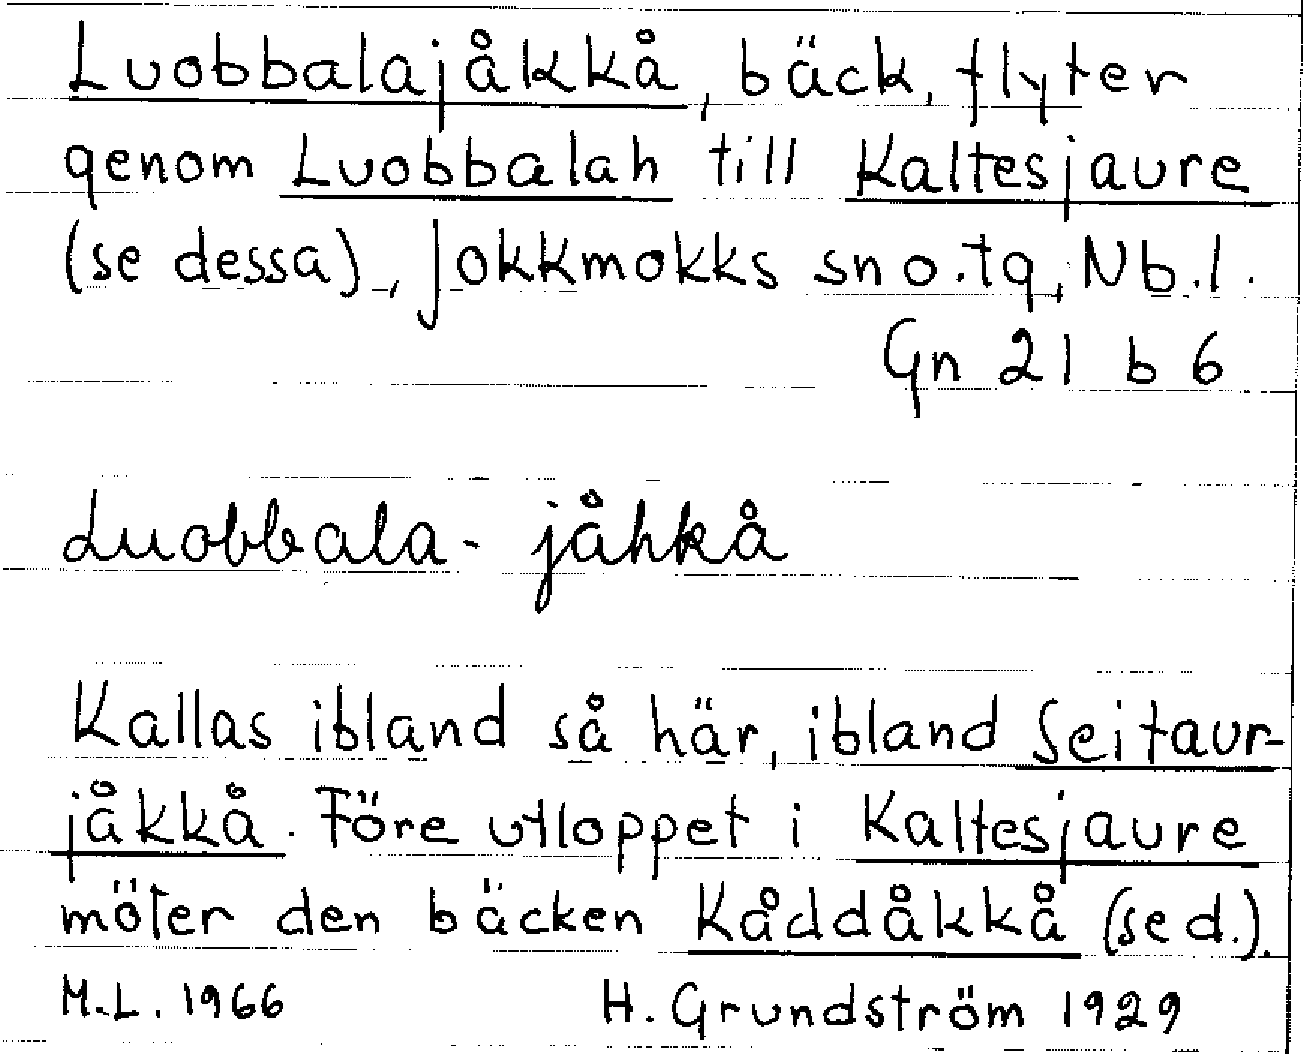 Luobbalajåkkå, bäck, flyter
genom Luobbalah till Kaltesjaure
(se dessa), Jokkmokks sn o.tg, Nb.l.
Gn 21 b 6
Luobbala-jåhkå
Kallas ibland så här, ibland Seitaur-
jåkkå. Före utloppet i Kaltesjaure
möter den bäcken Kåddåkkå (se d.).
M.L. 1966 H. Grundström 1929